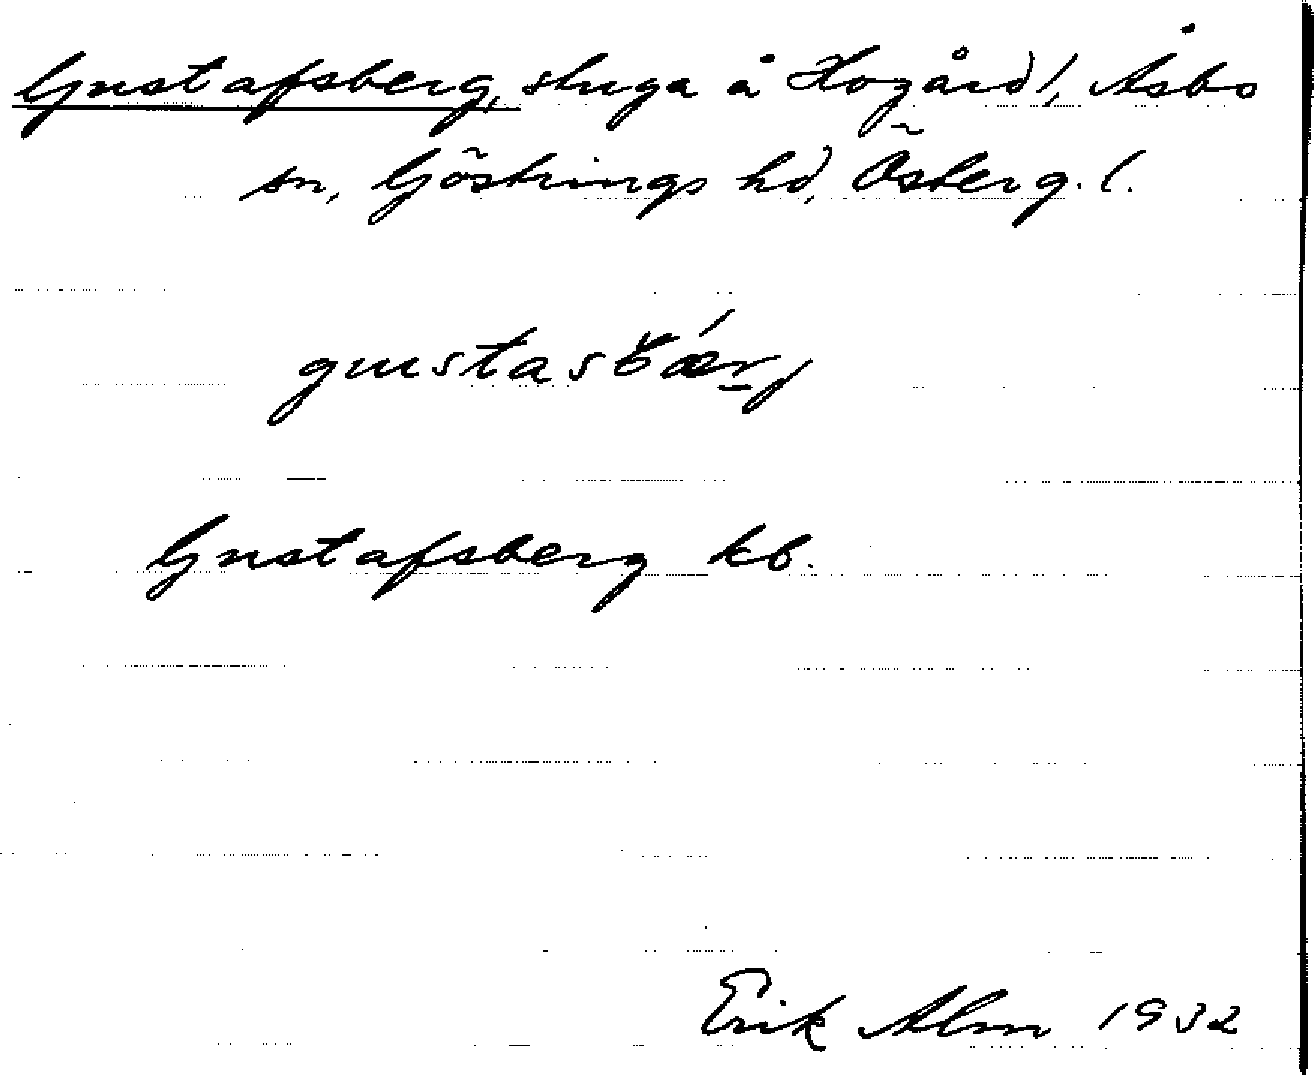 Gustafsberg, stuga å Hogård, Åsbo
sn, Göstrings hd, Österg. l.
Gustafsberg kb.
Erik Alm 1932